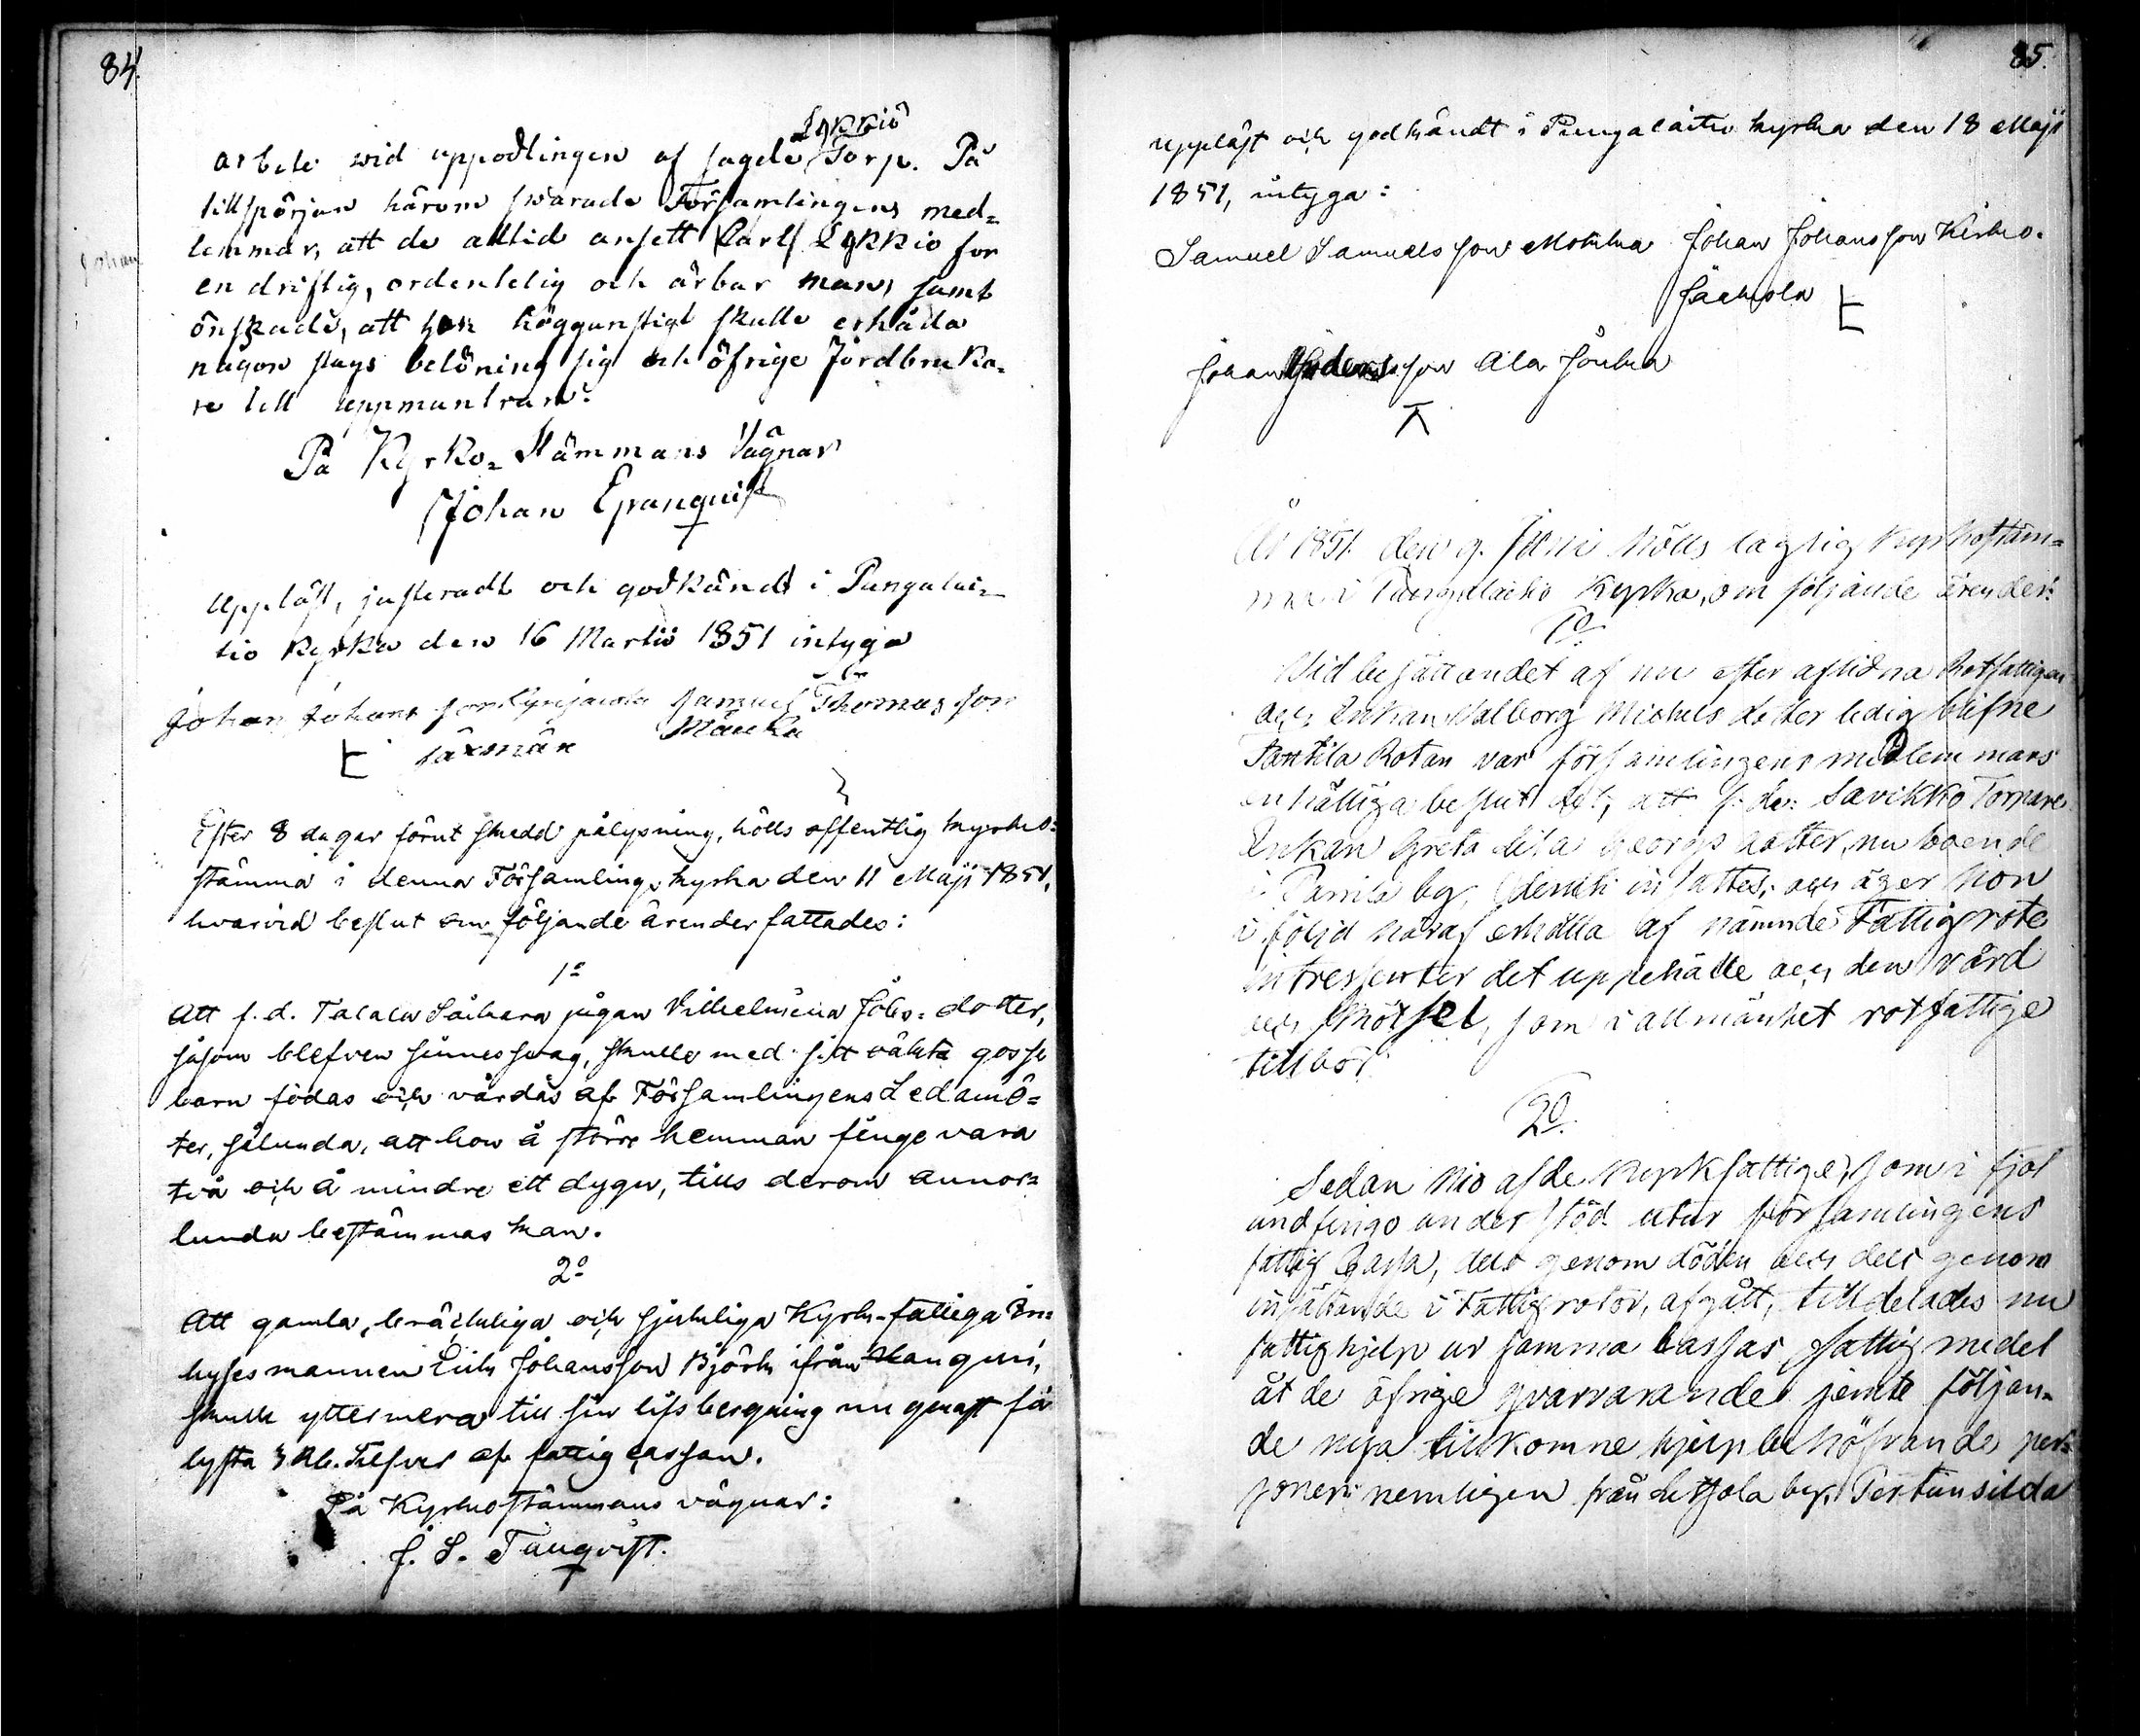 84.
Lykkiö
arbete wid uppodlingen af sagde Torp. På
tillspörjan härom swarade Församlingens med=
lemmar, att de alltid ansett Carl Lykkiö för
en driftig, ordentelig och ärbar man, samt
önskade, att han höggunstigt skulle erhåda
någon slags belöning sig och öfrige Jordbruka=
re till uppmuntran.
På Kyrko=Stämmans Vägnar
Johan Granquist
Uppläst, justeradt och godkändt i Pungalai=
tio Kyrka den 16 Martii 1851 intyga
Johan Johans son Samuel Thomas son
säxmän Mäucka
Efter 8 dagar förut skedd pålysning, hölls offentlig kyrko=
stämma i denna Församlings kyrka den 11 Maji 1851,
hwarvid beslut om följande ärender fattades:
1o
Att f. d. Talala Säihara pigan Vilhelmiina Johs=dotter,
såsom blefven sinnessvag, skulle med sitt oäkta gosse
barn födas och vårdas af Församlingens Ledamö=
ter, sålunda, att hon å större hemman finge vara
två och å mindre ett dygn, tills derom annor=
lunda bestämmas kan.
2o
Att gamla, bräckliga och sjukliga Kyrk=fattiga In=
hyses mannen Erik Johansson Björk ifrån
skulle yttermera till sin lifsbergning nu genast få
lyfta 3 Rb. Silfver af fattig cassan.
På Kyrkostämmans vägnar:
J. S. Tanqvist.
85.
uppläst och godkändt i Pungalaitio kyrka den 18 Maji
1851, intyga:
Samuel Samuels son Mokka Johan Johansson Kisko.
Jaakola
Johan Anders son Ala Jouka
År 1851 den 9. Juni hölls laglig Kyrkostäm=
ma i Pungalaitio Kyrka, om följande ärender:
1o
Vid besättandet af nu efter aflidna Rotfattigen
och Enkan Valborg Michels dotter ledig blifne
Panttila Rotan var församlingens medlemmars
enhälliga beslut det, att f. de: Savikko Torpare
Enkan Greta Lisa Georgs dotter, nu boende
i Parrila by, deruti insattes; och äger hon
i följd häraf erhålla af nämnde Fattigrote
intressenter det uppehälle och den vård
och skötsel, som i allmänhet rotfattige
tillhör.
2o.
Sedan nio af de Kyrkfattige, som i fjol
undfingo understöd utur församlingens
fattig Cassa, dels genom döden och dels genom
insättande i Fattigrotor, afgått, tilldelades nu
fattighjelp ur samma cassas fattig medel
åt de öfrige qvarvarande jemte följan=
de nya tillkomne hjelpbehöfvande per=
soner: nemligen från by. Perttunsilda